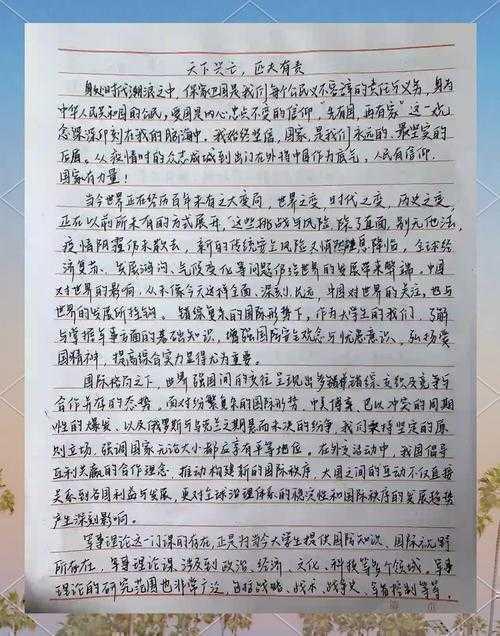 天下兴亡，匹夫有责
身处时代潮浪之中，保家卫国是我们每个公民义不容辞的责任与义务，身为
中华人民共和国的公民，爱国是内心忠贞不变的信仰“先有国，再有家”这一观
念深深印刻在我的脑海中。我始终坚信，国家，是我们永远的、最坚实的
后盾。从疫情时的众志成城到出门在外将中国作为底气，人民有信仰，
国家有力量！
当今世界正在经历百年未有之大变局，世界之变、时代之变、历史之变，
正在以前所未有的方式展开，这些挑战与风险，除了直面，别无他法，
疫情阴霾仍未散去，新的传统安全风险又悄然降临，全球经
济复苏、发展鸿沟、气候变化等问题仍给世界的发展带来弊端，中国
对世界的影响，从未像今天这样全面、深刻、长远，中国对世界的关注，也与
世界的发展所挂钩。错综复杂的国际形势下，作为大学生的我们，了解
与掌握军事方面的基础知识，增强国防安全观念与忧患意识，弘扬爱
国精神，提高综合实力显得尤为重要。
国际格局之下，世界强国间的交往呈现出多领域错综交织及竞争与
合作并存的态势。面对纷繁复杂的国际形势，中美博弈、巴以冲突的周期
性的爆发、以及俄罗斯与乌克兰之期悬而未决的纷争，我们要持坚定的原
则立场，强调国家无论大小都应享有平等地位。在外交活动中，我国倡导
互利共赢的合作理念，推动构建新的国际秩序，大国之间的互动不仅直接
关系到各国利益与发展，更对全球治理体系的稳定性和国际秩序的发展趋势
产生深刻影响。
军事理论这一门课的存在，正是为当今大学生提供国防知识、国际视野
所存在，军事理论课，涉及到政治、经济、文化、科技等多个领域，军事
理论的研究范围也非常广泛，包括战略、战术、战争史、军备控制等等，